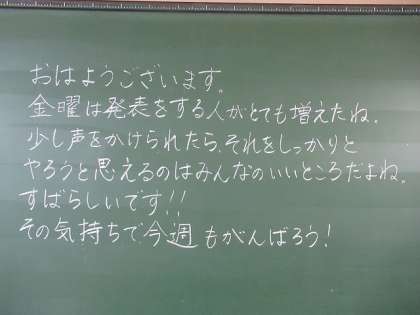 おはようございます。
金曜は発表をする人がとても増えたね。
少し声をかけられたら、それをしっかりと
やろうと思えるのはみんなのいいところだよね。
すばらしいです!!
その気持ちで今週もがんばろう!